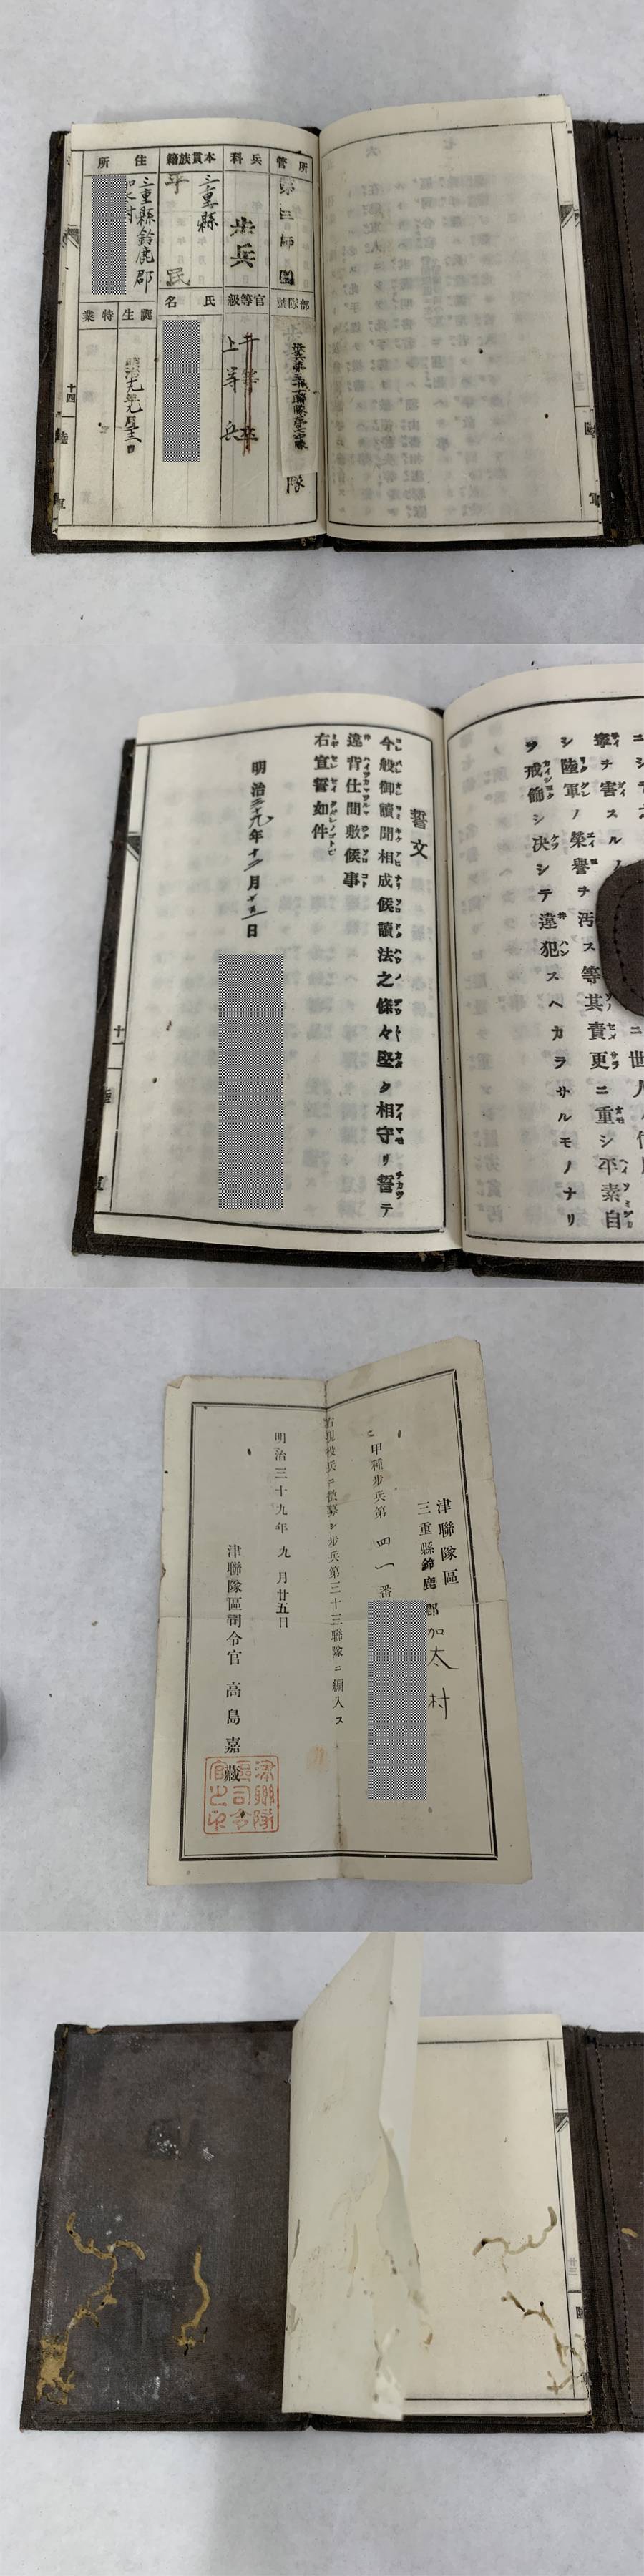 所管
第三師團
兵科
歩兵
本貫族籍
三重縣
平民
住所
三重縣鈴鹿郡
加太村
部隊號
隊
官等級
上等兵
氏名
誕生
特業
十四
誓文
今般御讀聞相成候讀法之條々堅ク相守リ誓テ
違背仕間敷候事
右宣誓如件
明治三十九年十二月十五日
十一
寧ヲ害スル
シ陸軍ノ榮譽ヲ汚ス等其責更ニ重シ平素自
ヲ戒飾シ決シテ違犯スヘカラサルモノナリ
津聯隊區
三重縣鈴鹿郡加太村
甲種歩兵第四一番
右現役兵ニ徴募シ歩兵第三十三聯隊ニ編入ス
明治三十九年九月廿五日
津聯隊區司令官高島嘉藏
津聯隊區司令官之印